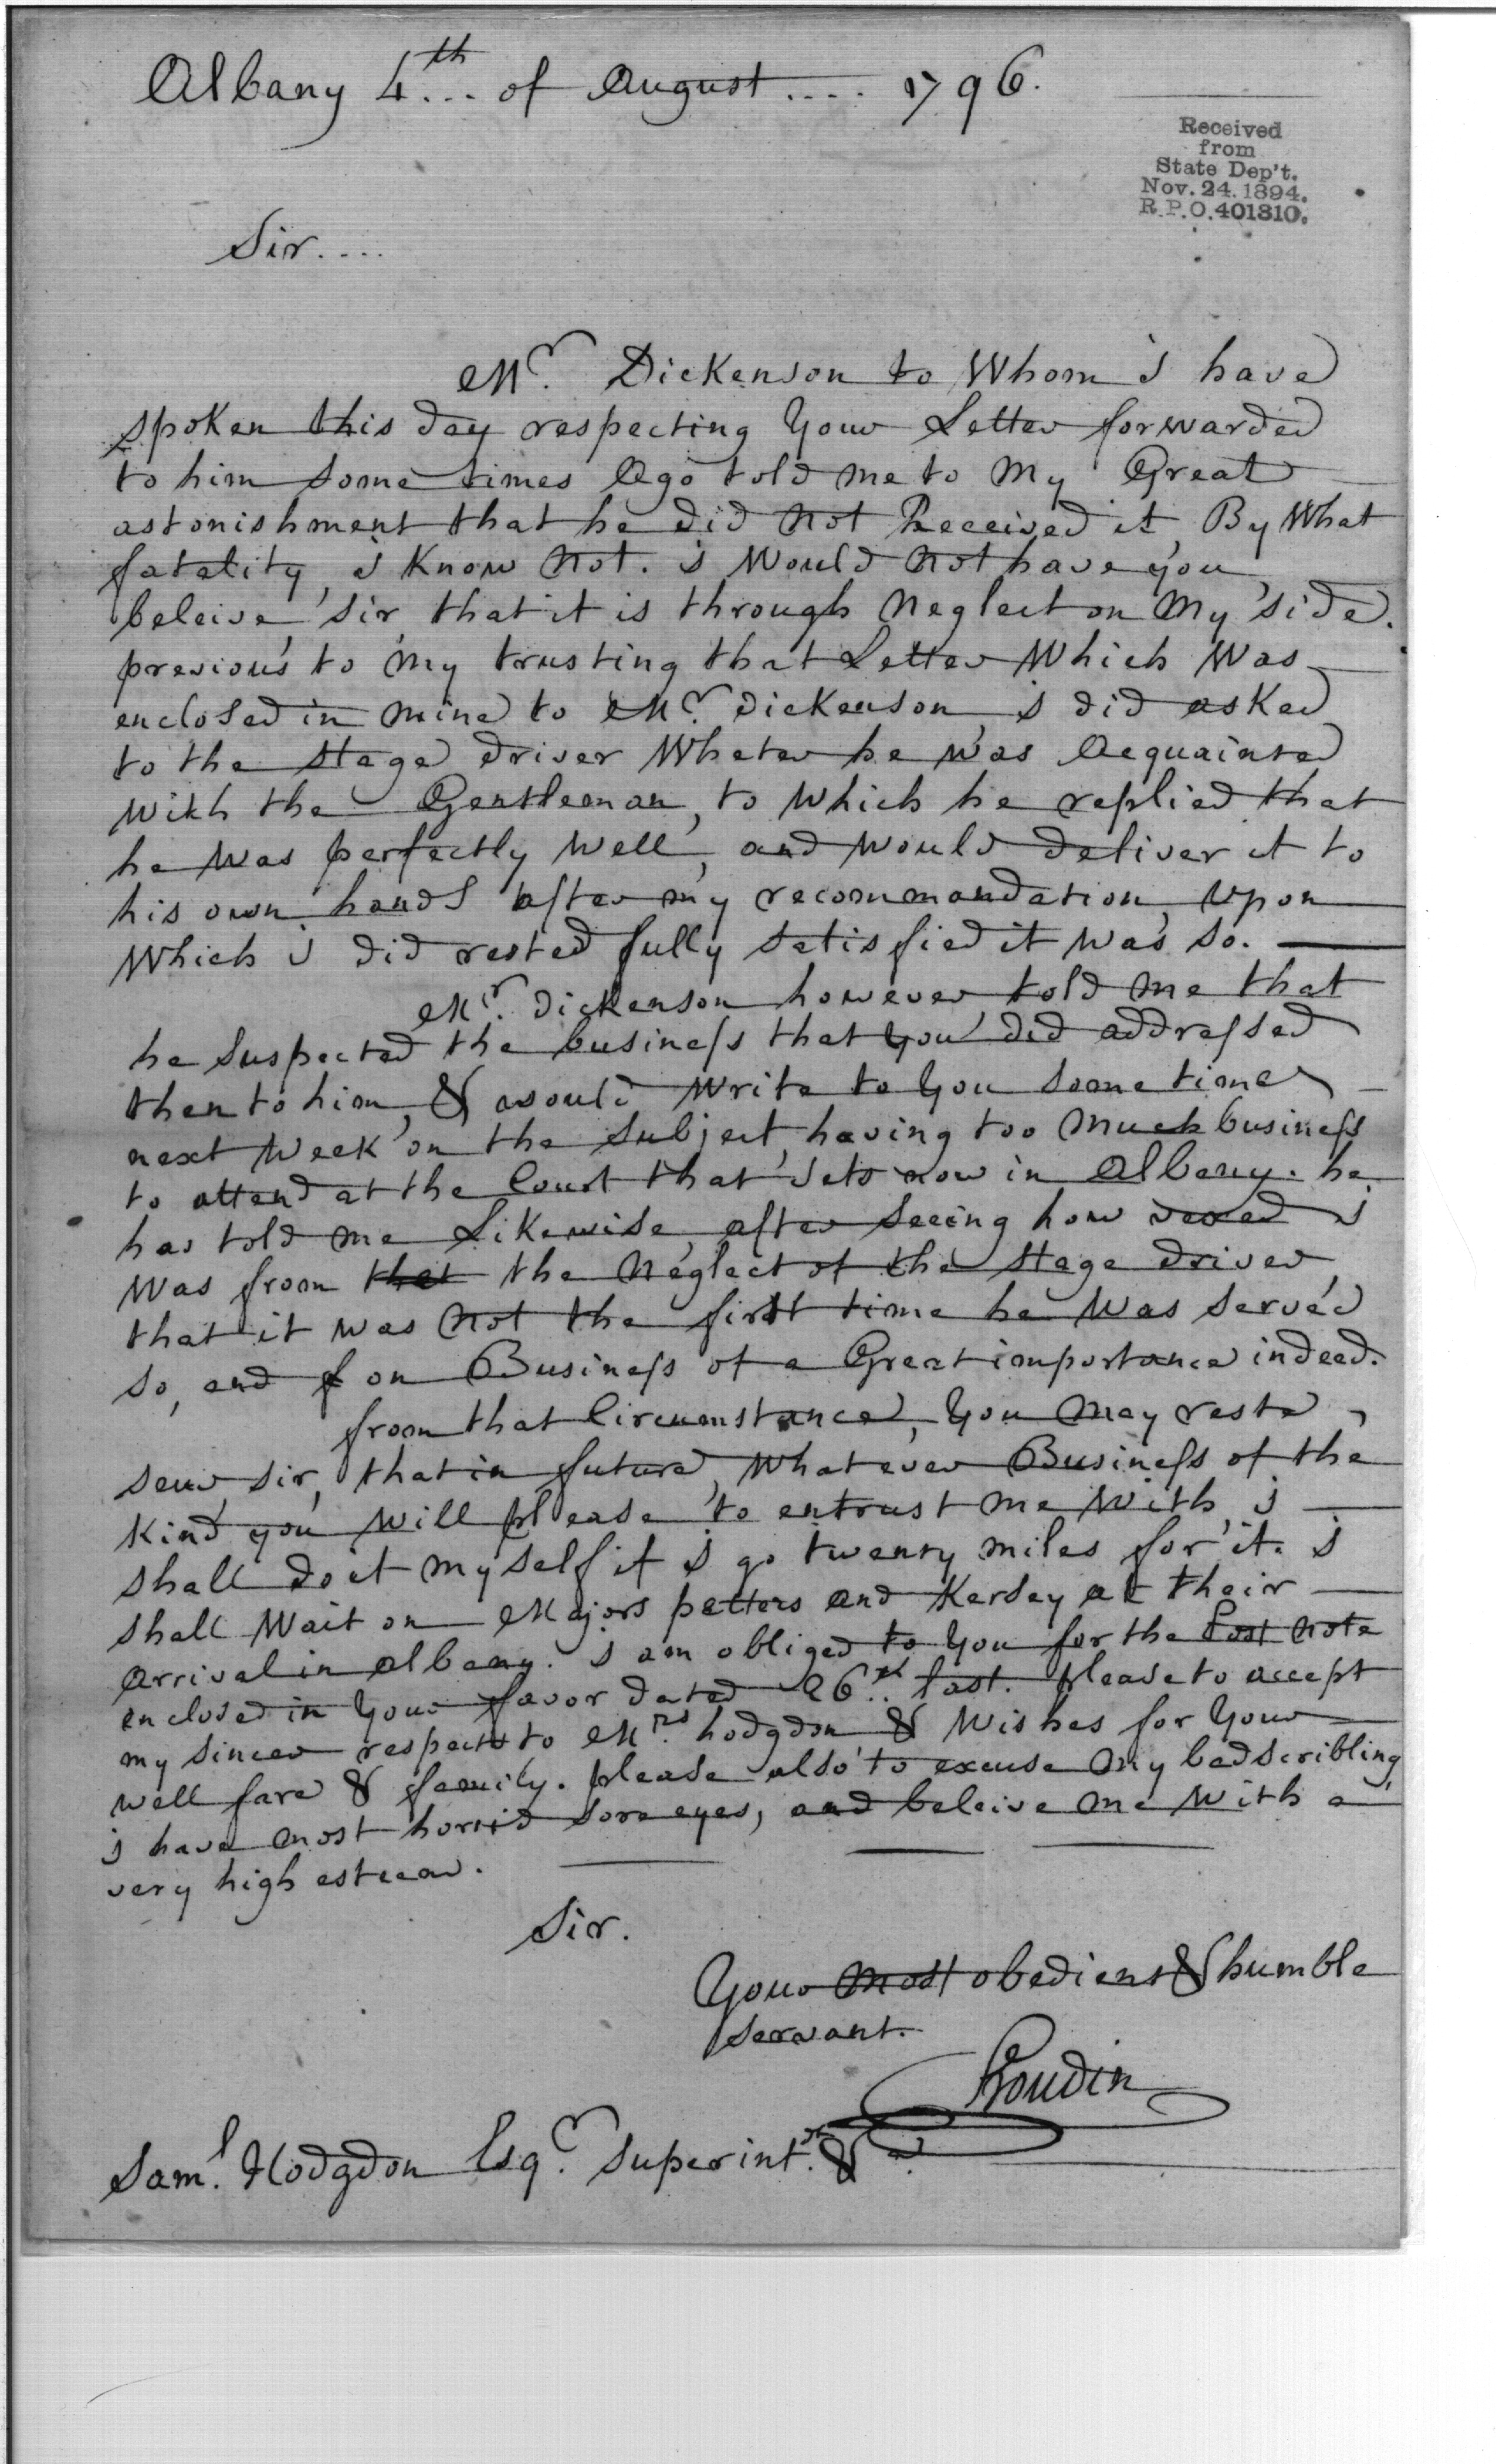 Albany 4th... of August .... 1796.
Received
from
State Dep't.
Nov. 24. 1894.
R.P.O. 401810.
Sir....
Mr. Dickenson to Whom i have
spoken this day respecting Your Letter forwarded
to him some times Ago told me to My Great
astonishment that he did Not Received it, By What
fatality, i Know Not. i Would Not have you
beleive, sir that it is through Neglect on My side.
previous to my trusting that Letter Which Was
enclosed in mine to Mr. Dickenson, i did asked
to the stage driver Wheter he was Acquainted
With the Gentleman, to Which he replied that
he Was perfectly Well, and Would deliver it to
his own hands after my recommandation, Upon
Which i did rested fully satisfied it was so.
Mr. Dickenson however told me that
he suspected the business that you did addressed
then to him, & would Write to You some time
next Week on the subject, having too Much business
to attend at the Court that sets now in Albany. he
has told me Likewise, after seeing how vexed i
Was from that the Neglect of the stage driver,
that it was Not the first time he Was served
so, and f on Business of a Great importance indeed.
from that Circumstance, You May reste
seur sir, that in future, What ever Business of the
Kind you Will please to entrust me With, i
shall do it my self if i go twenty miles for it. i
shall Wait on Majors petters and Kersey at their
Arrival in albany. i am obliged to You for the Post Note
enclosed in Your favor dated 26th.. last. please to accept
my sincer respects to Mrs. hodgdon & Wishes for Your
well fare & family. please also to excuse My bad scribling
i have most horrid sore eyes, and beleive me With a
very high esteem.
Sir.
Your most obedient & humble
servant.
Roudin
Saml. Hodgdon Esqr. Superintt. & a.